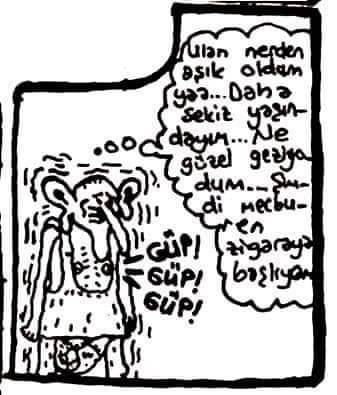 Ulan nerden
aşık oldum
yaa... Daha
sekiz yaşın-
dayım... Ne
güzel geziyo
dum... Şu-
di mecbu-
ren
zigaraya
başlıyom
GÜP!
GÜP!
GÜP!